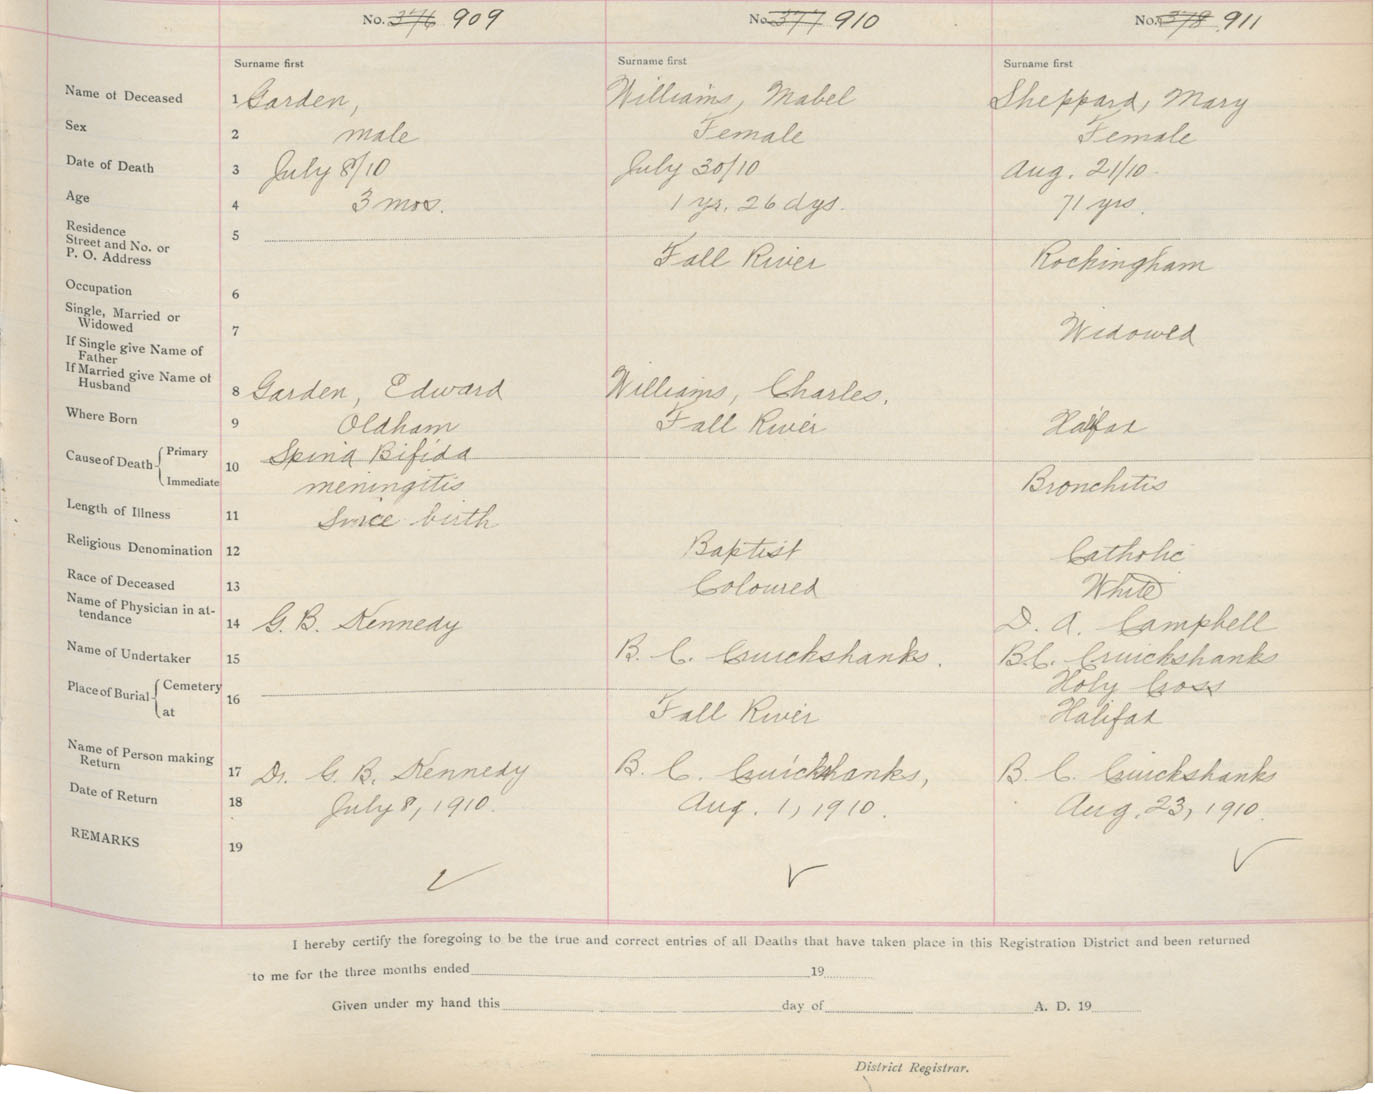 No. 376 909 No. 377 910 No. 378 911
Surname first Surname first Surname first
Name of Deceased 1 Garden, Williams, Mabel Sheppard, Mary
Sex 2 male Female Female
Date of Death 3 July 8/10 July 30/10 Aug. 21/10.
Age 4 3 mos. 1 yr. 26 dys. 71 yrs.
Residence
Street and No. or
P. O. Address 5 Fall River Rockingham
Occupation 6
Single, Married or
Widowed 7 Widowed
If Single give Name of
Father
If Married give Name of
Husband 8 Garden, Edward Williams, Charles.
Where Born 9 Oldham Fall River Halifax
Cause of Death Primary 10 Spina Bifida
Immediate meningitis Bronchitis
Length of Illness 11 Since birth
Religious Denomination 12 Baptist Catholic
Race of Deceased 13 Coloured White
Name of Physician in at-
tendance 14 G. B. Kennedy D. A. Campbell
Name of Undertaker 15 B. C. Cruickshanks. B.C. Cruickshanks
Place of Burial Cemetery 16 Holy Cross
at Fall River Halifax
Name of Person making
Return 17 Dr. G. B. Kennedy B. C. Cruickshanks, B. C. Cruickshanks
Date of Return 18 July 8, 1910. Aug. 1, 1910. Aug. 23, 1910.
REMARKS 19
I hereby certify the foregoing to be the true and correct entries of all Deaths that have taken place in this Registration District and been returned
to me for the three months ended 19
Given under my hand this day of A. D. 19
District Registrar.